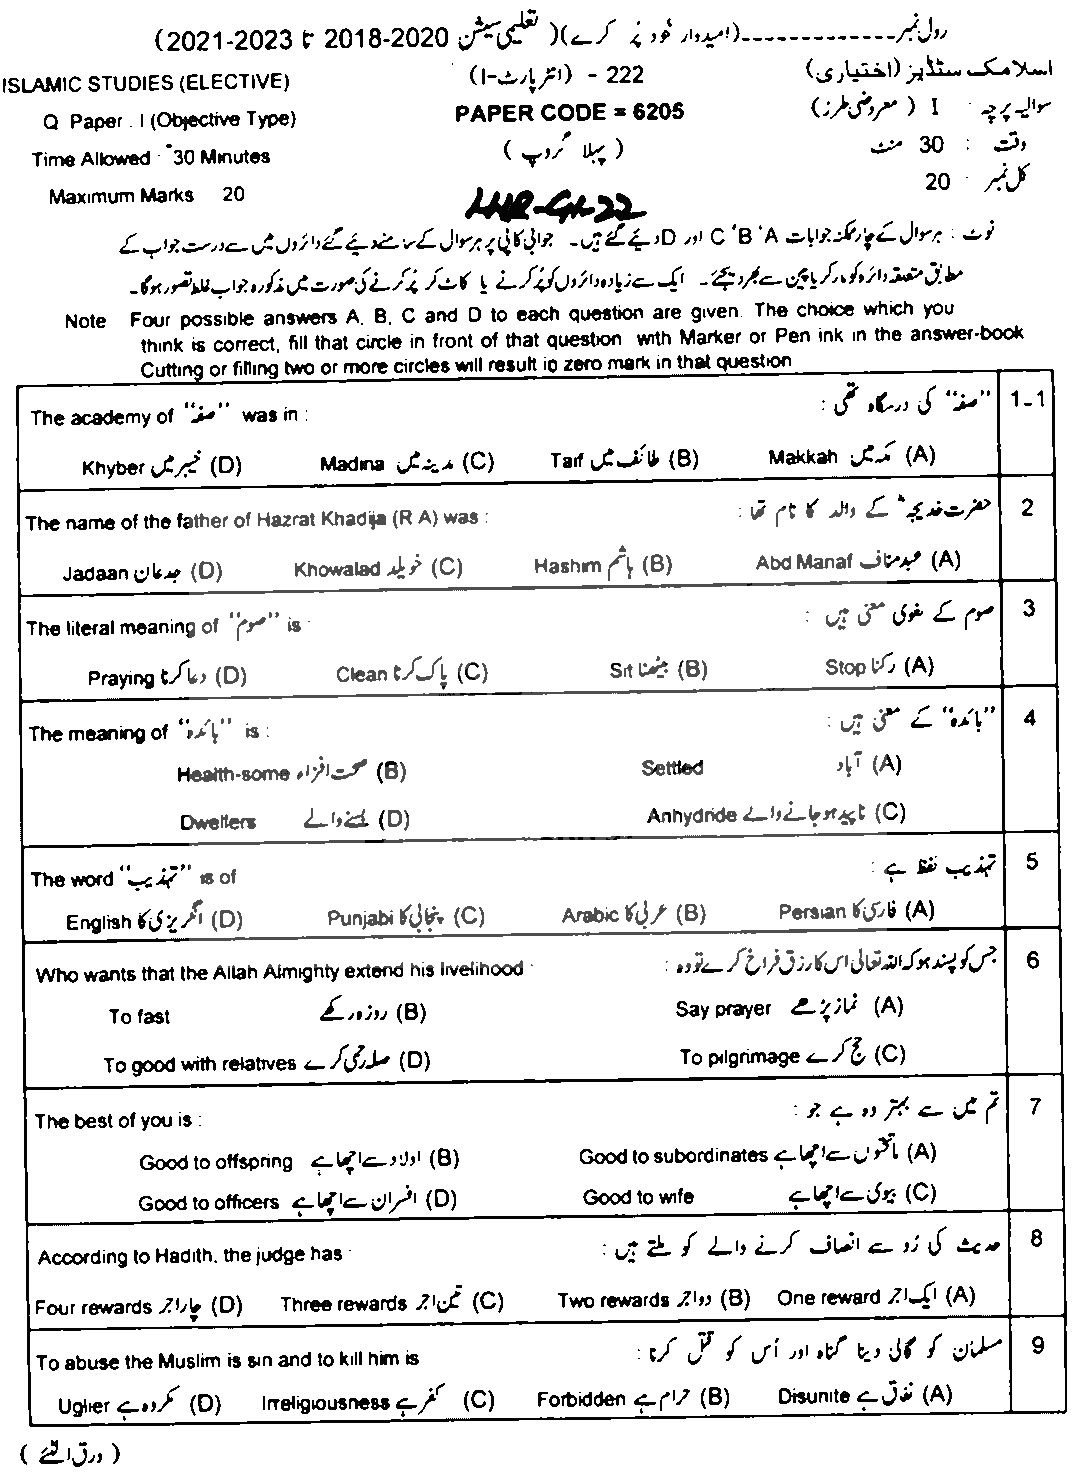 رول نمبر-------------(امیدوار خود پُر کرے)(تعلیمی سیشن 2020-2018 تا 2023-2021)
ISLAMIC STUDIES (ELECTIVE) 222 - (انٹر پارٹ-I) اسلامک سٹڈیز (اختیاری)
Q Paper . I (Objective Type) PAPER CODE = 6205 سوالیہ پرچہ : I (معروضی طرز)
Time Allowed 30 Minutes (پہلا گروپ) وقت : 30 منٹ
Maximum Marks 20 کل نمبر : 20
LHR-G1-22
نوٹ : ہر سوال کے چار ممکنہ جوابات A ‘B ‘C اور D دیئے گئے ہیں۔ جوابی کاپی پر ہر سوال کے سامنے دیئے گئے دائروں میں سے درست جواب کے
مطابق متعلقہ دائرہ کو مارکر یا پین سے بھر دیجئے۔ ایک سے زیادہ دائروں کو پُر کرنے یا کاٹ کر پُر کرنے کی صورت میں مذکورہ جواب غلط تصور ہو گا۔
Note Four possible answers A, B, C and D to each question are given. The choice which you
think is correct, fill that circle in front of that question with Marker or Pen ink in the answer-book
Cutting or filling two or more circles will result in zero mark in that question
The academy of "صفہ" was in : "صفہ" کی درسگاہ تھی : 1-1
Khyber خیبر میں (D) Madina مدینہ میں (C) Taif طائف میں (B) Makkah مکہ میں (A)
The name of the father of Hazrat Khadija (R A) was : حضرت خدیجہؓ کے والد کا نام تھا : 2
Jadaan جدعان (D) Khowalad خویلد (C) Hashim ہاشم (B) Abd Manaf عبد مناف (A)
The literal meaning of "صوم" is : صوم کے لغوی معنی ہیں : 3
Praying دعا کرنا (D) Clean پاک کرنا (C) Sit بیٹھنا (B) Stop رکنا (A)
The meaning of "بائدہ" is : "بائدہ" کے معنی ہیں : 4
Health-some صحت افزاء (B) Settled آباد (A)
Dwellers بسنے والے (D) Anhydride ناپید ہو جانے والے (C)
The word "تہذیب" is of تہذیب لفظ ہے : 5
English انگریزی کا (D) Punjabi پنجابی کا (C) Arabic عربی کا (B) Persian فارسی کا (A)
Who wants that the Allah Almighty extend his livelihood : جس کو پسند ہو کہ اللہ تعالیٰ اس کا رزق فراخ کرے تو وہ : 6
To fast روزہ رکھے (B) Say prayer نماز پڑھے (A)
To good with relatives صلہ رحمی کرے (D) To pilgrimage حج کرے (C)
The best of you is : تم میں سے بہتر وہ ہے جو : 7
Good to offspring اولاد سے اچھا ہے (B) Good to subordinates ماتحتوں سے اچھا ہے (A)
Good to officers افسران سے اچھا ہے (D) Good to wife بیوی سے اچھا ہے (C)
According to Hadith, the judge has : حدیث کی رُو سے انصاف کرنے والے کو ملتے ہیں : 8
Four rewards چار اجر (D) Three rewards تین اجر (C) Two rewards دو اجر (B) One reward ایک اجر (A)
To abuse the Muslim is sin and to kill him is مسلمان کو گالی دینا گناہ اور اُس کو قتل کرنا : 9
Uglier مکروہ ہے (D) Irreligiousness کفر ہے (C) Forbidden حرام ہے (B) Disunite نفاق ہے (A)
(ورق الٹئے)